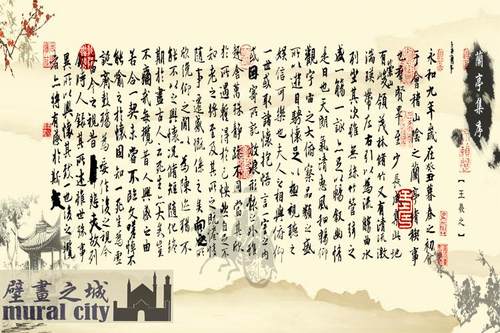 蘭亭集序
【王羲之】
永和九年歲在癸丑暮春之初會
于會稽山陰之蘭亭脩稧事
也群賢畢至少長咸集此地
有崇山峻領茂林脩竹又有清流激
湍暎帶左右引以為流觴曲水
列坐其次雖無絲竹管弦之
盛一觴一詠亦足以暢敘幽情
是日也天朗氣清惠風和暢仰
觀宇宙之大俯察品類之盛
所以遊目騁懷足以極視聽之
娛信可樂也夫人之相與俯仰
一世或取諸懷抱悟言一室之內
或因寄所託放浪形骸之外雖
趣舍萬殊靜躁不同當其欣
於所遇暫得於己怏然自足不
知老之將至及其所之既惓情
隨事遷感慨係之矣向之所
欣俛仰之間以為陳迹猶不
能不以之興懷況脩短隨化終
期於盡古人云死生亦大矣豈
不痛哉每攬昔人興感之由
若合一契未嘗不臨文嗟悼不
能喻之於懷固知一死生為虛
誕齊彭殤為妄作後之視今
亦由今之視昔悲夫故列
敘時人錄其所述雖世殊事
異所以興懷其致一也後之攬
者亦將有感於斯文
壁畫之城
mural city